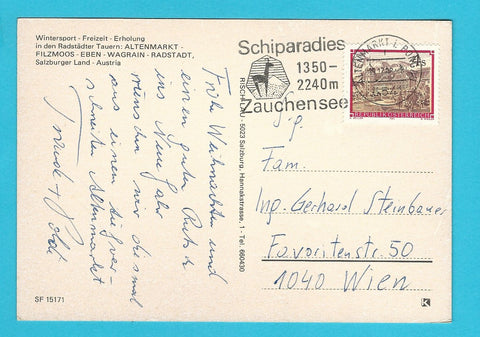 Wintersport - Freizeit - Erholung
in den Radstädter Tauern: ALTENMARKT -
FILZMOOS - EBEN - WAGRAIN - RADSTADT,
Salzburger Land - Austria
Frohe Weihnachten und
einen guten Rutsch
ins Neue Jahr
wünschen wir diesmal
aus einem tief ver-
schneiten Altenmarkt
SF 15171
RISCH-LAU - 5023 Salzburg, Hannakstrasse, 1 - Tel. 660430
Schiparadies
1350-
2240m
Zauchensee
ALTENMARKT
4S
REPUBLIK ÖSTERREICH
Fam.
Ing. Gerhard Steinbauer
Favoritenstr. 50
1040 Wien
K